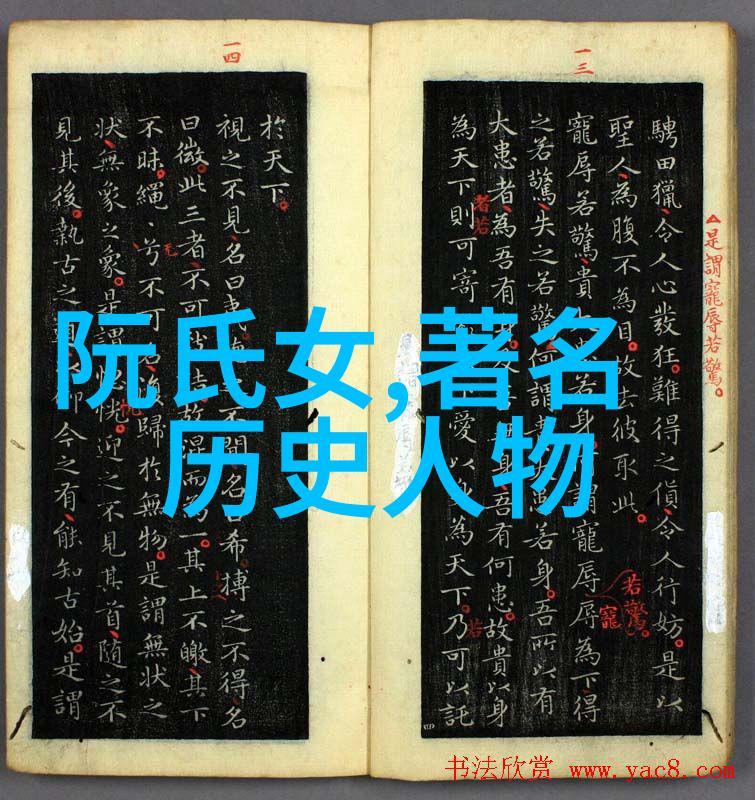 一三
△是謂寵辱若驚。
騁田獵令人心發狂。難得之貨令人行妨。是以
聖人為腹不為目。故去彼取此。
寵辱若驚貴患若身謂寵辱辱為下得
之若驚失之若驚何謂患若身。吾所以有
大患者為吾有身吾有何患。故貴以身
者若
為天下則可寄愛以為天下。乃可以託
若驚。
寵
若
一四
於天下。
視之不見名曰夷不聞名希摶之不得名
曰微。此三者不可詰故混而為一。其上不皦其下
不昧。繩〻兮不可名復歸於無物。是謂無狀之
狀無象之象。是謂惚迎之不見其首隨之不
見其後。執古之御今之有能知古始。是謂
阮氏女,著名
历史人物
书法欣赏 www.yac8.com